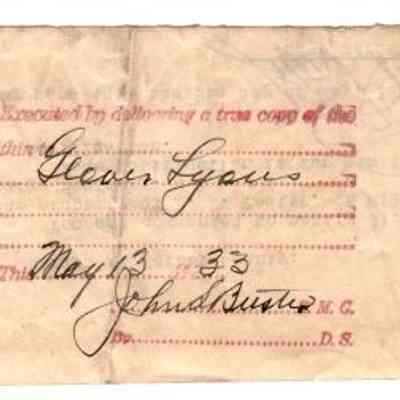 Executed by delivering a true copy of the
within to
Glover Lyons
This May 13 1933
John S Buster M. C.
By D. S.